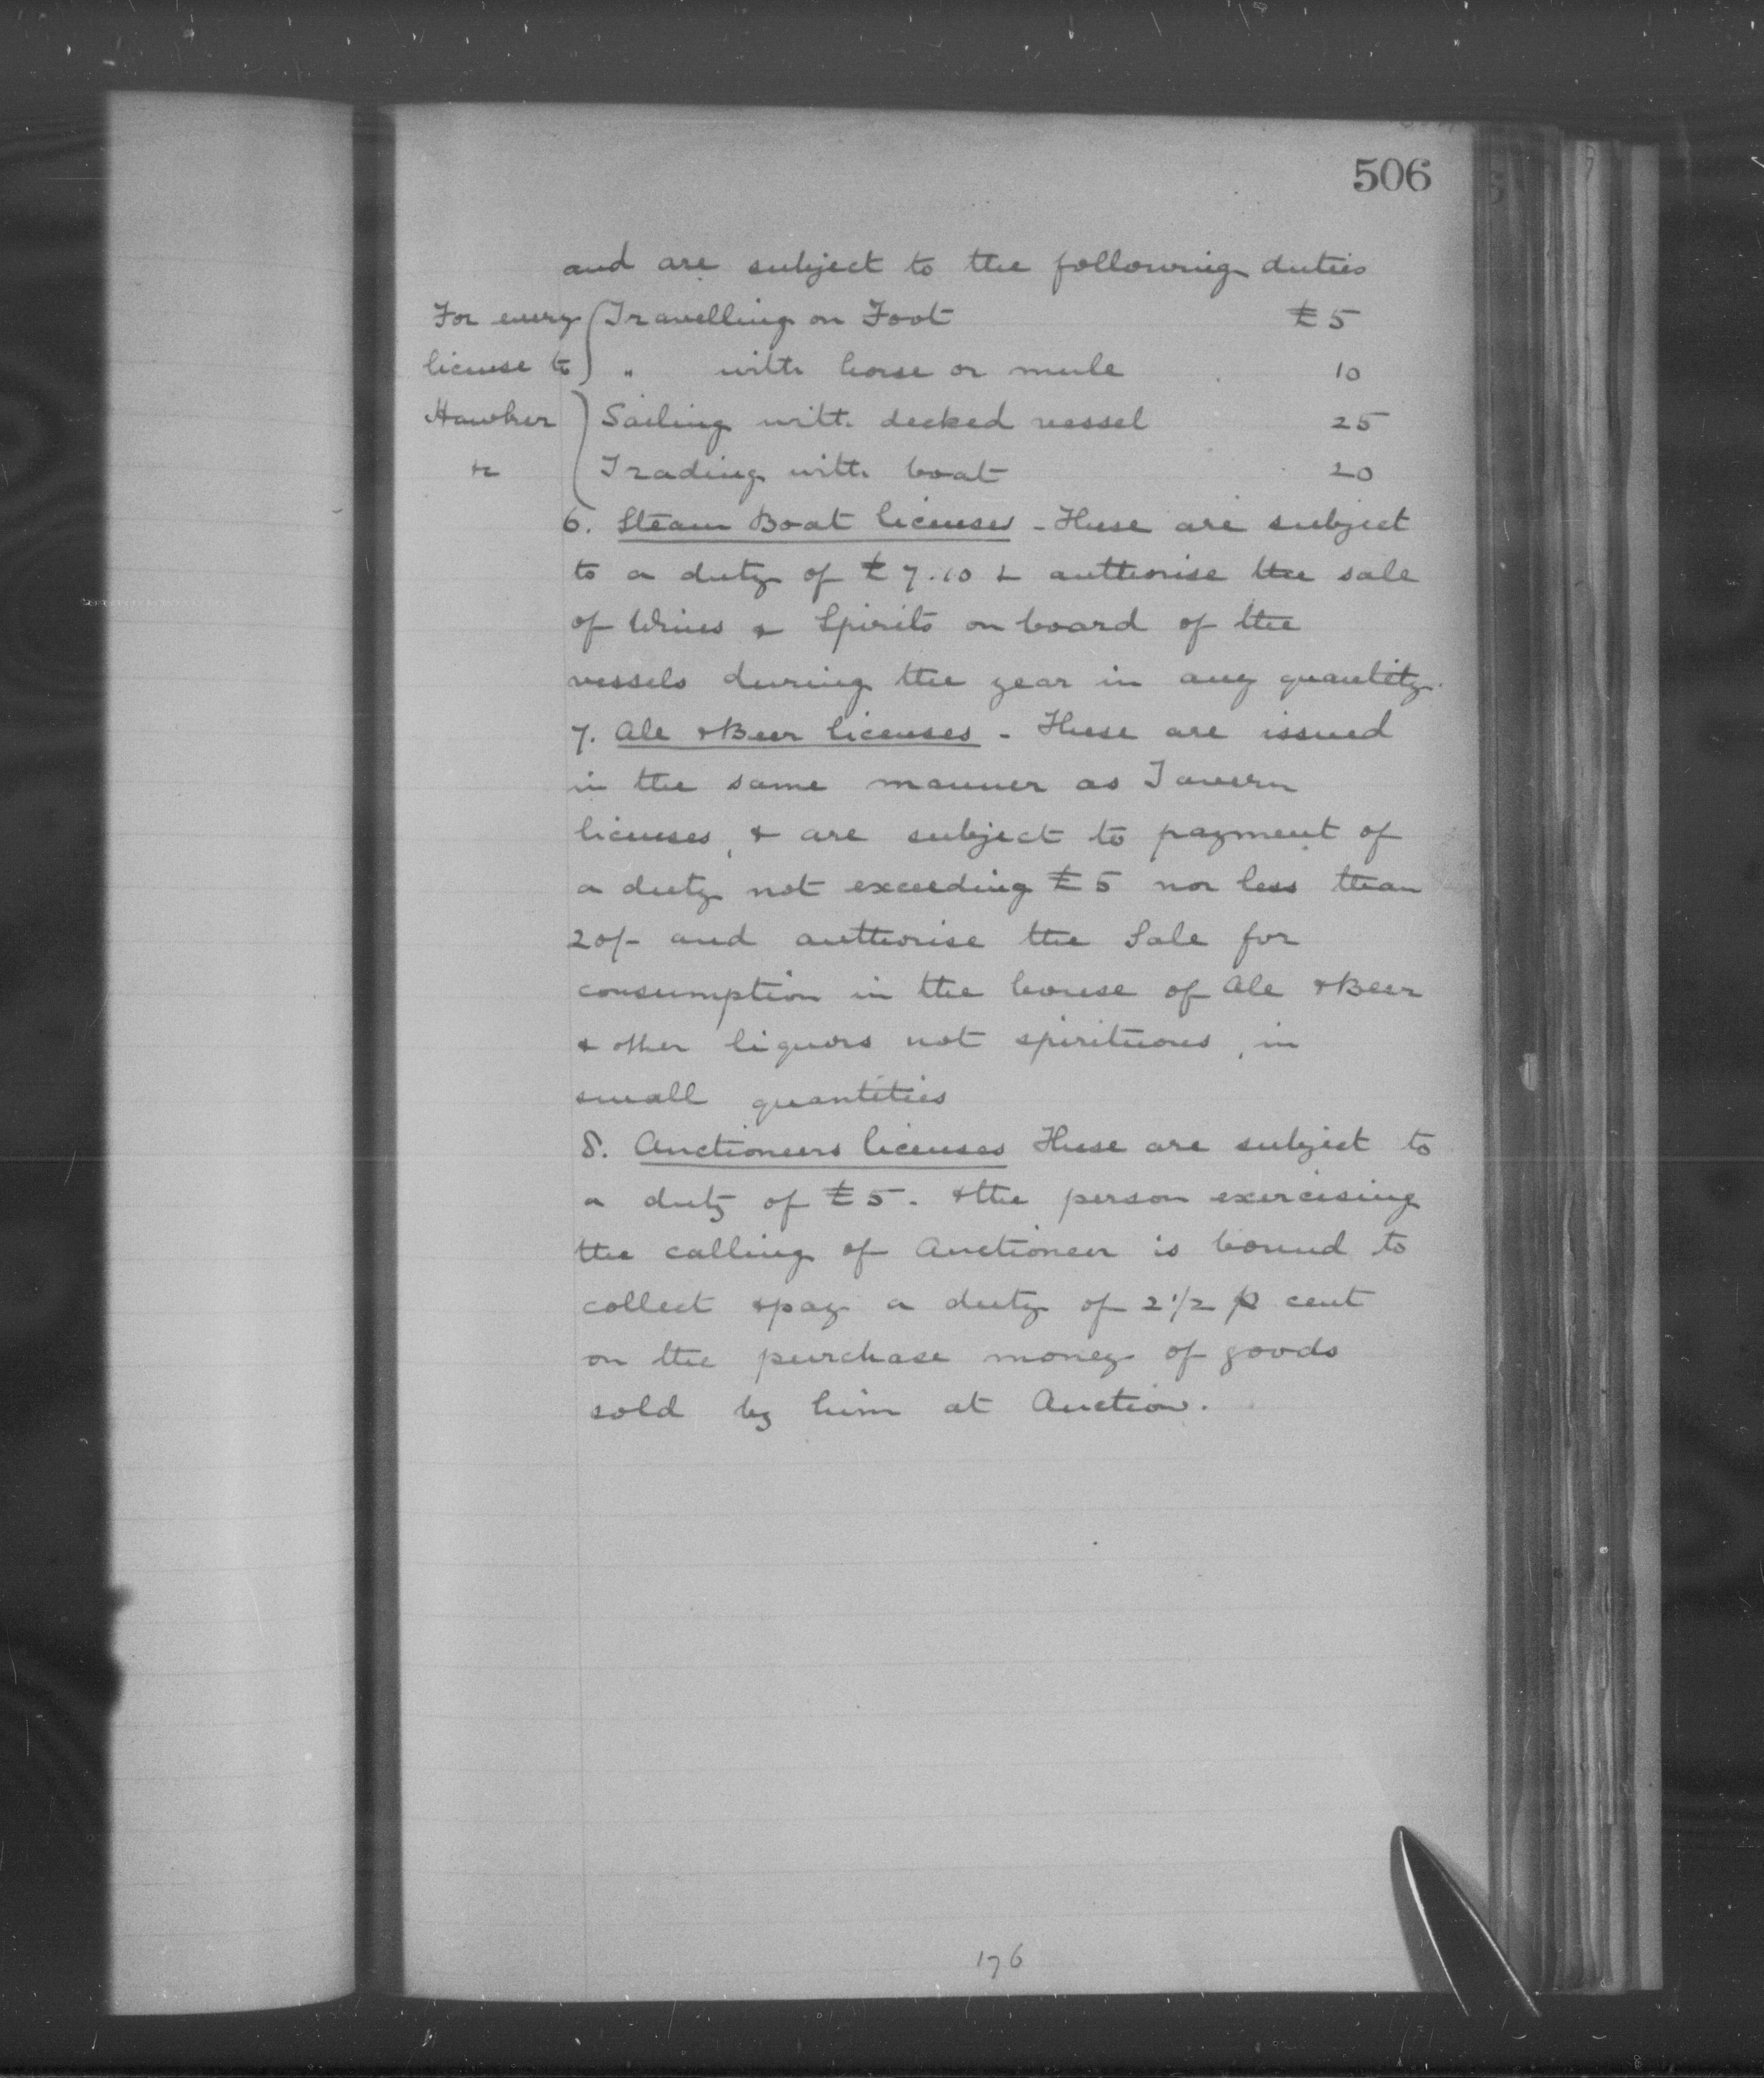 506
and are subject to the following duties
For every Travelling on Foot £5
license to " with horse or mule 10
Hawker Sailing with decked vessel 25
&c Trading with boat 20
6. Steam Boat licenses - These are subject
to a duty of £7.10 & authorise the sale
of Wines & Spirits on board of the
vessels during the year in any quantity.
7. Ale & Beer licenses - These are issued
in the same manner as Tavern
licenses, & are subject to payment of
a duty not exceeding £5 nor less than
20/- and authorise the Sale for
consumption in the house of Ale & Beer
& other liquors not spirituous, in
small quantities
8. Auctioneers licenses These are subject to
a duty of £5. & the person exercising
the calling of Auctioneer is bound to
collect & pay a duty of 2 1/2 p cent
on the purchase money of goods
sold by him at Auction.
176